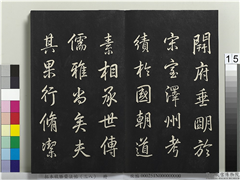 開府垂眀於
宋室澤州考
績於國朝道
素相承世傳
儒雅尚矣夫
其果行脩潔
15